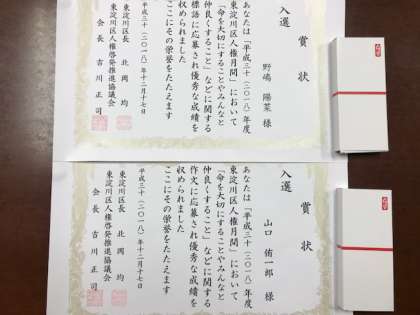 賞状
入選
野嶋 陽菜 様
あなたは「平成三十(二〇一八)年度
東淀川区人権月間」において
「命を大切にすることやみんなと
仲良くすること」などに関する
標語に応募され優秀な成績を
収められました
ここにその栄誉をたたえます
平成三十(二〇一八)年十二月十七日
東淀川区長 北岡 均
東淀川区人権啓発推進協議会
会長 吉川 正司
賞状
入選
山口 侑一郎 様
あなたは「平成三十(二〇一八)年度
東淀川区人権月間」において
「命を大切にすることやみんなと
仲良くすること」などに関する
作文に応募され優秀な成績を
収められました
ここにその栄誉をたたえます
平成三十(二〇一八)年十二月十七日
東淀川区長 北岡 均
東淀川区人権啓発推進協議会
会長 吉川 正司